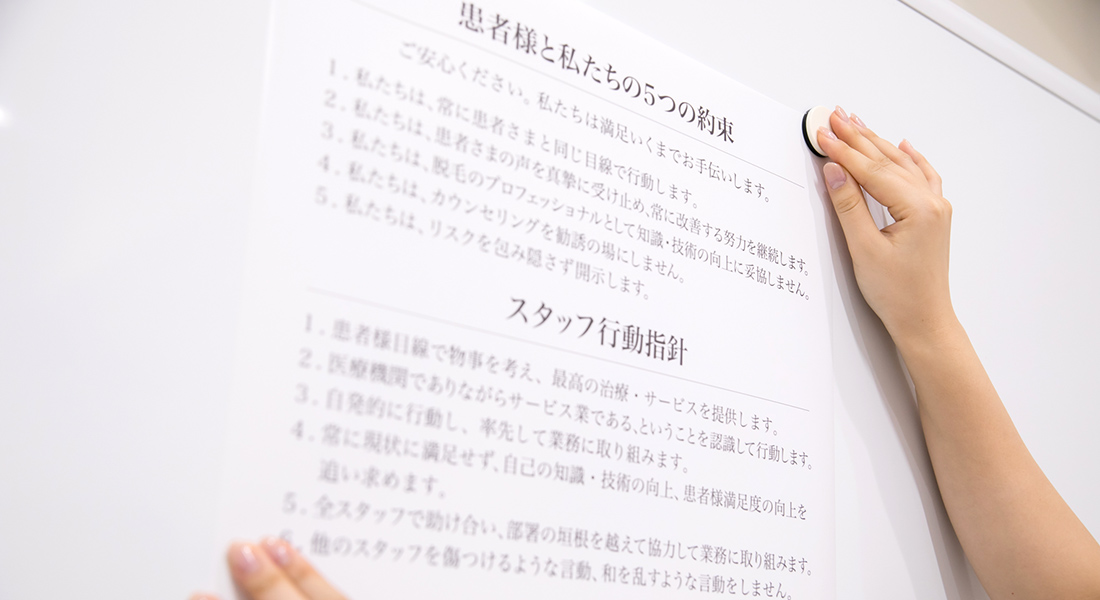 患者様と私たちの5つの約束
ご安心ください。私たちは満足いくまでお手伝いします。
1. 私たちは、常に患者さまと同じ目線で行動します。
2. 私たちは、患者さまの声を真摯に受け止め、常に改善する努力を継続します。
3. 私たちは、脱毛のプロフェッショナルとして知識・技術の向上に妥協しません。
4. 私たちは、カウンセリングを勧誘の場にしません。
5. 私たちは、リスクを包み隠さず開示します。
スタッフ行動指針
1. 患者様目線で物事を考え、最高の治療・サービスを提供します。
2. 医療機関でありながらサービス業である、ということを認識して行動します。
3. 自発的に行動し、率先して業務に取り組みます。
4. 常に現状に満足せず、自己の知識・技術の向上、患者様満足度の向上を
追い求めます。
5. 全スタッフで助け合い、部署の垣根を越えて協力して業務に取り組みます。
6. 他のスタッフを傷つけるような言動、和を乱すような言動をしません。